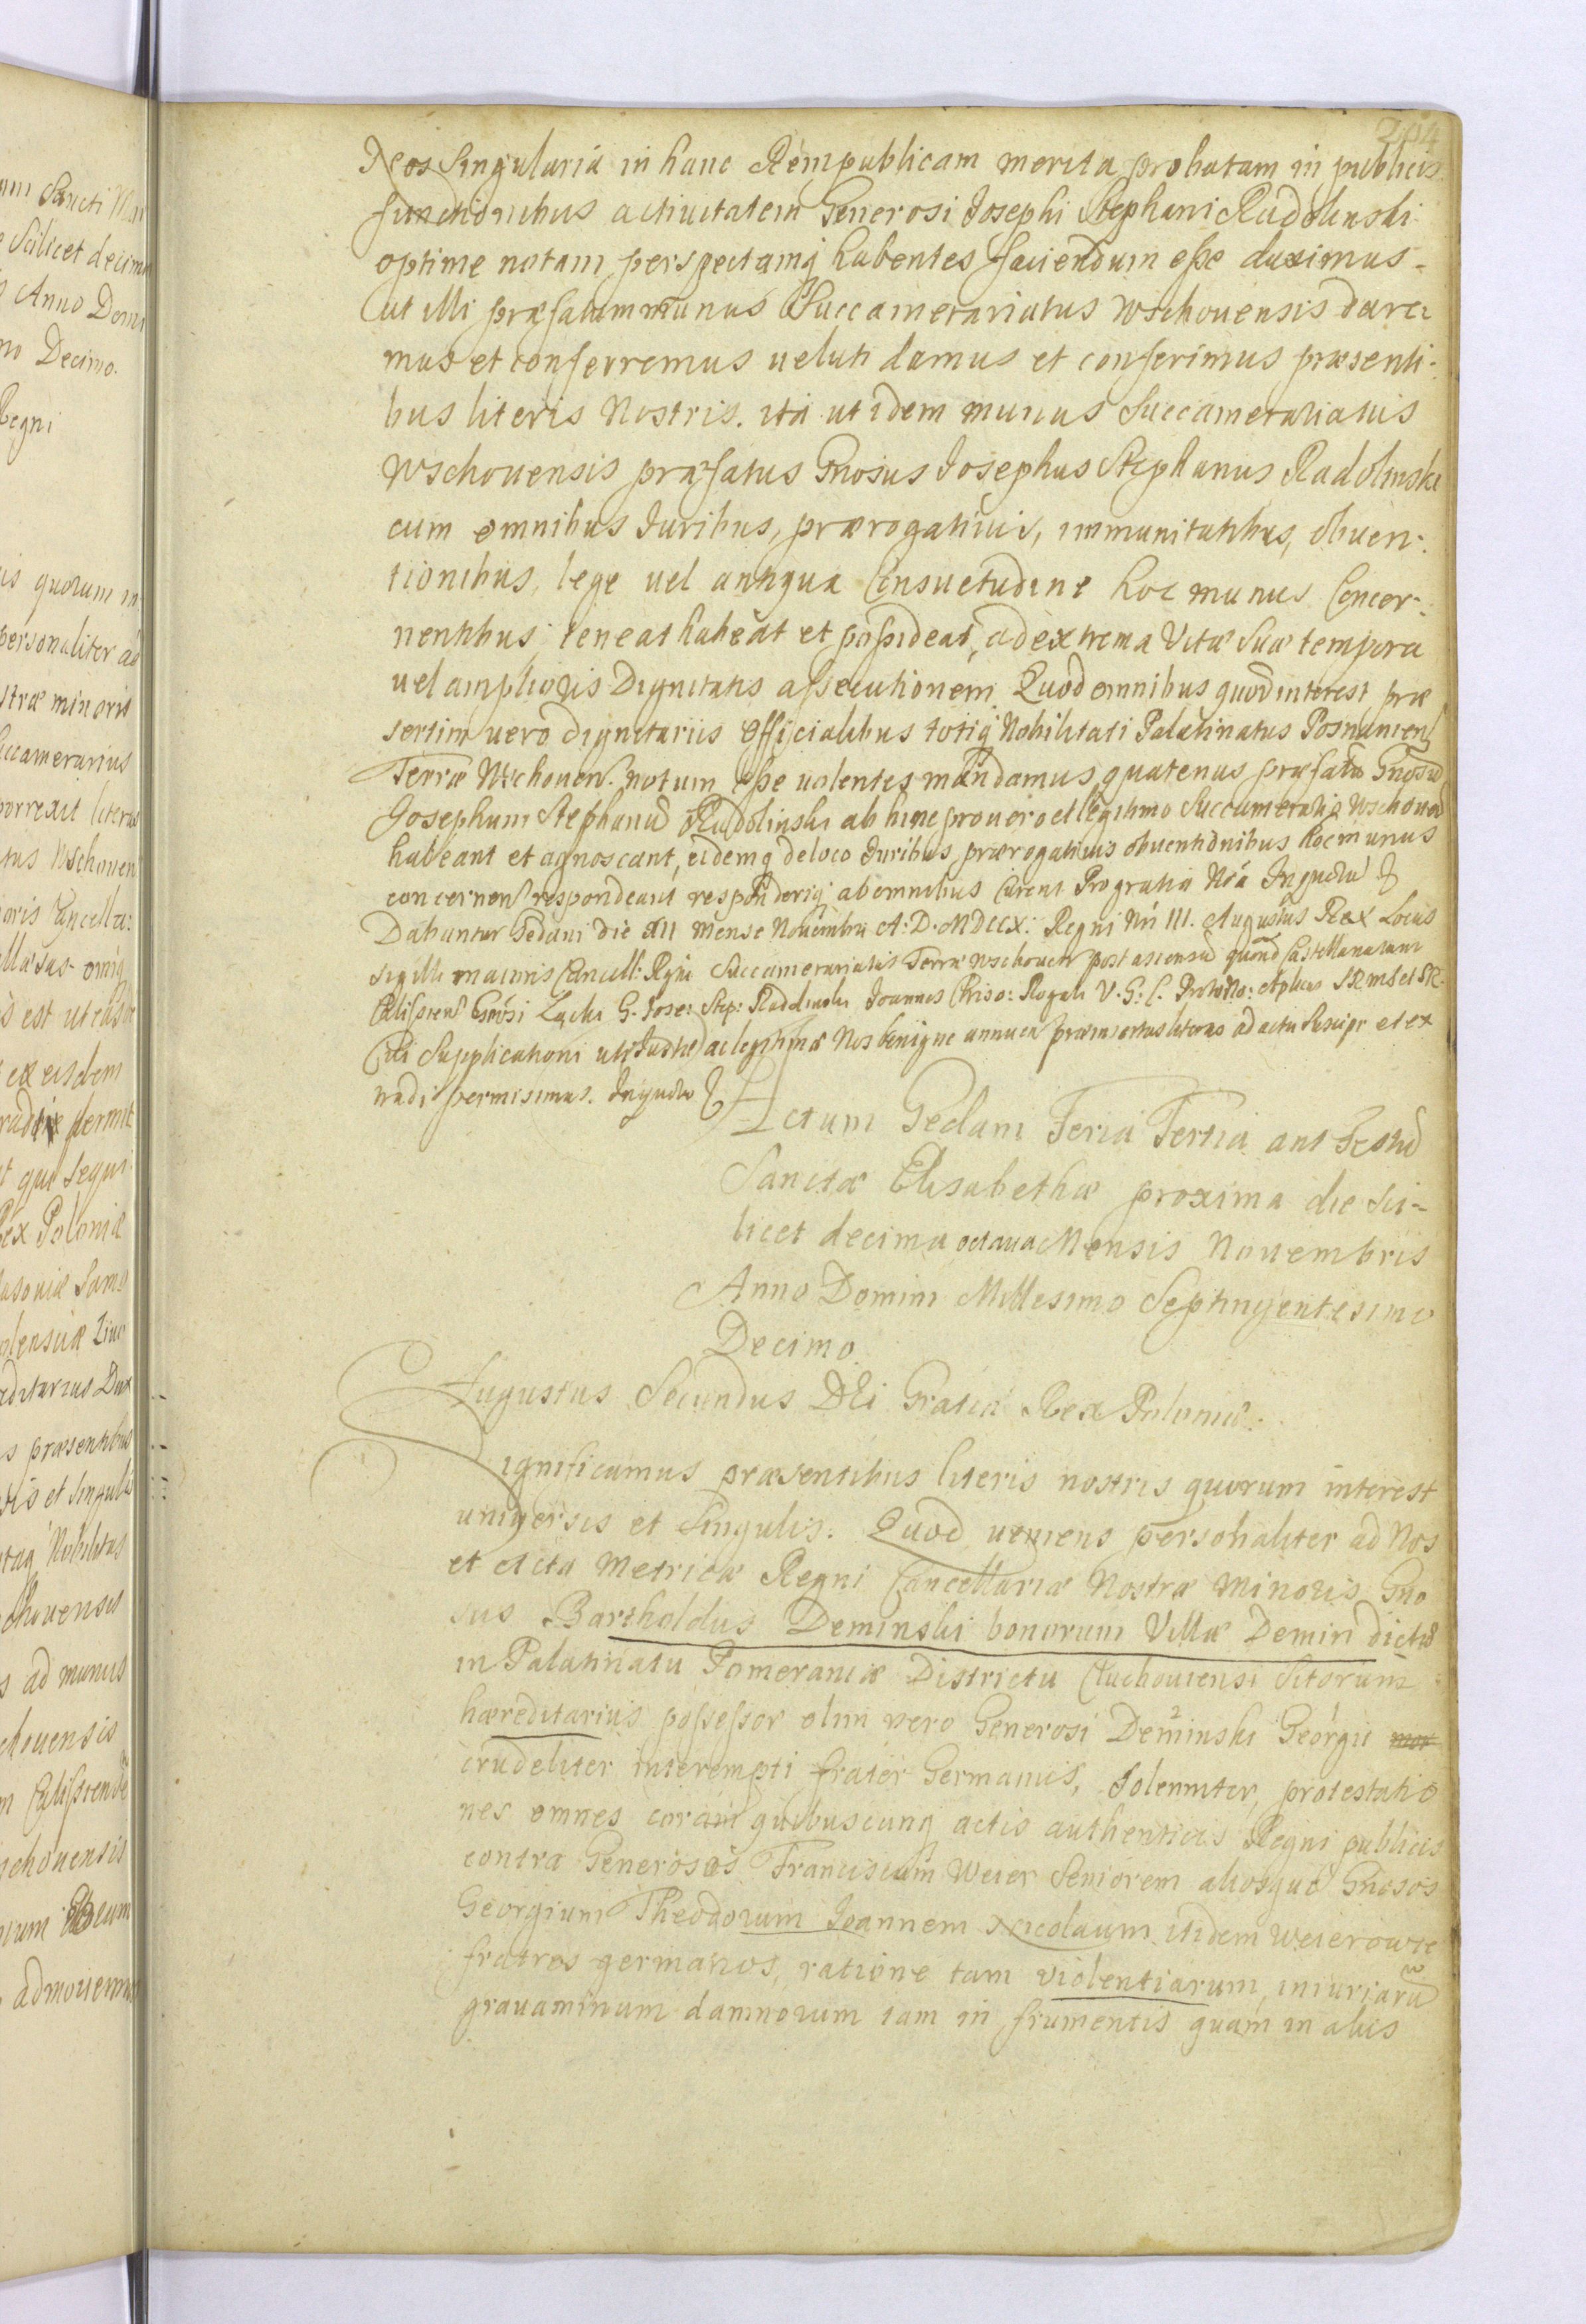 204
Nos Singularia in hanc Rempublicam merita, probatam in publicis
functionibus actiuitatem Generosi Josephi Stephani Radolinski
optime notam perspectamq habentes faciendum eſse duximus
ut illi præfatum munus Succamerariatus Wschouensis dare:
mus et conferremus ueluti damus et conferimus præsenti:
bus literis Nostris. ita ut idem munus Succamerariatus
Wschouensis præfatus Gnosus Josephus Stephanus Radolinski
cum omnibus Juribus, prærogatiuis, immunitatibus, obuen:
tionibus, lege uel antiqua Consuetudine hoc munus Concer:
nentibus, teneat habeat et poſsideat, ad extrema Vitæ Suæ tempora
uel amplioris Dignitatis aſsecutionem. Quod omnibus quod interest, præ
sertim uero dignitariis Officialibus totiq Nobilitati Palatinatus Posnanien
Terræ Wschouen. notum eſse uolentes mandamus, quatenus præfatū Gnosū
Josephum Stephanū Radolinski ab hinc pro uero et legitimo Succamerario Wschouen
habeant et agnoscant, eidemq de loco Juribus prærogatiuis obuentionibus hoc munus
concernen respondeant responderiq ab omnibus curent Pro gratia Nrá In quoru
Dabantur Gedani die XII mense Nouembri A: D. MDCCX. Regni Nri III. Augustus Rex Locus
sigilli maioris Cancell: Regni Succamerariatus Terræ Wschouen post ascensū quond Castellanatum
Caliſsien Gnosi Zychi G. Jose: Step: Radolinski Joannes Chriso: Rogali V. G: C.
Cui Supplicationi uti Justæ ac legitimæ Nos benigne annuen præinsertas literas ad acta Suscipi et ex
tradi permisimus. In quoru
Actum Gedani Feria Tertia ant Festū
Sanctæ Elisabethæ proxima die Sci-
licet decima octaua Mensis Nouembris
Anno Domini Millesimo Septingentesimo
Decimo.
Augustus Secundus DEi Gratia Rex Poloniæ.
Significamus præsentibus literis nostris quorum interest
uniuersis et Singulis. Quod ueniens personaliter ad Nos
et Acta Metricæ Regni Cancellariæ Nostræ Minoris Gno
sus Bartholdus Deminski bonorum Villæ Demin dictæ
in Palatinatu Pomeraniæ Districtu Cluchouiensi Sitorum
hæreditarius poſseſsor olim vero Generosi Deminski Georgii mor
crudeliter interempti frater Germanus, Solenniter, protestatio
nes omnes coram quibuscunq actis authenticis Regni publicis
contra Generosos Franciscum Weier Seniorem aliosque Gnosos
Georgium Theodorum Joannem Nicolaum itidem Weierowie
fratres germanos, ratione tam violentiarum, iniuriarū
grauaminum damnorum tam in frumentis quam in aliis